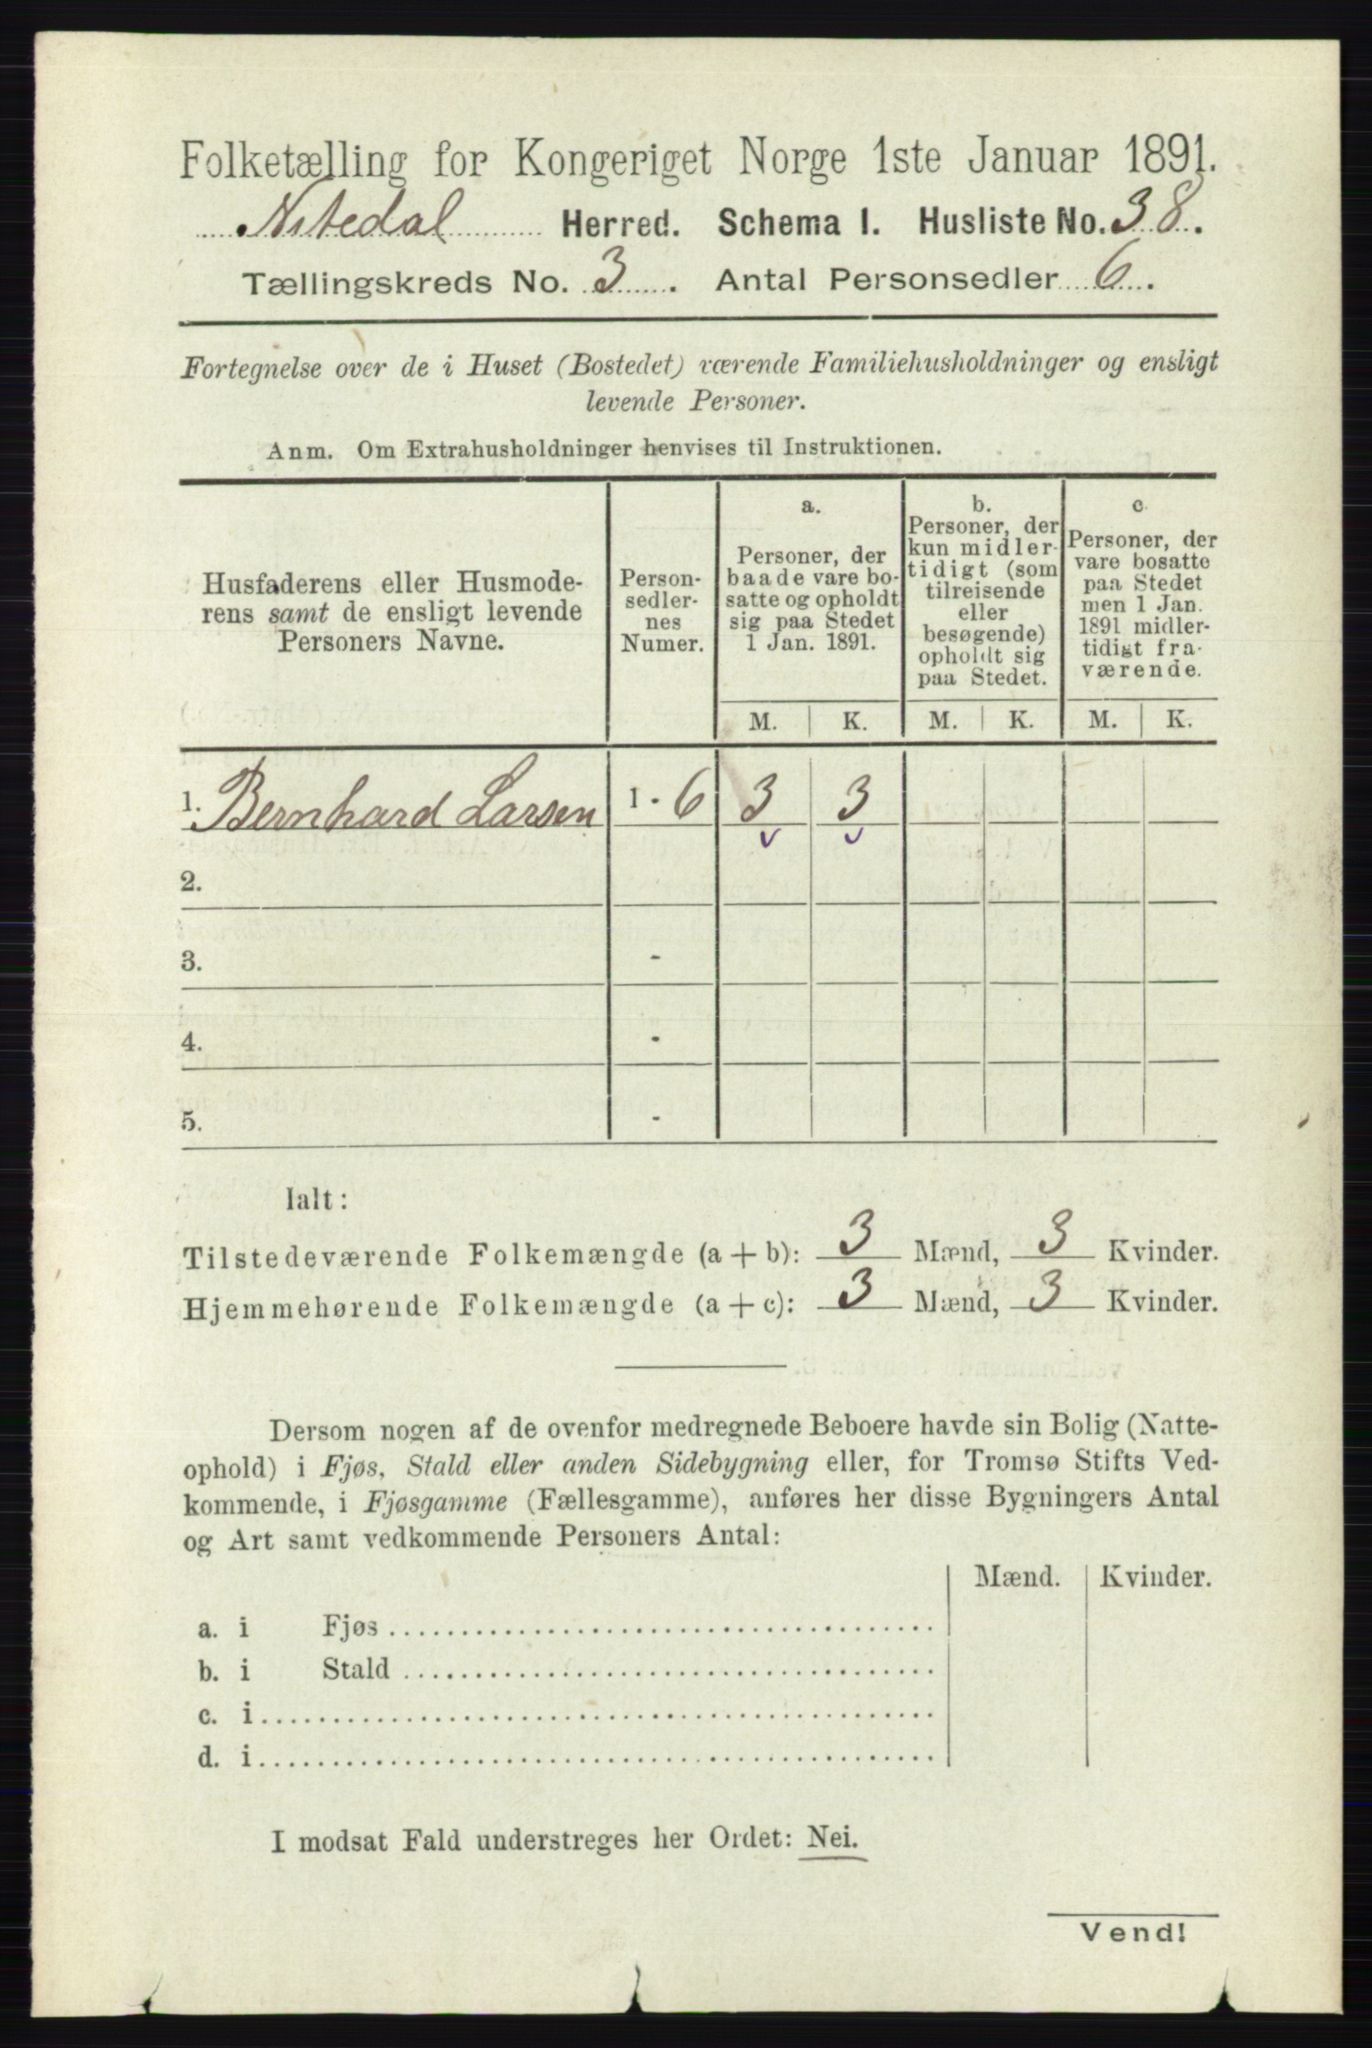 Folketælling for Kongeriget Norge 1ste Januar 1891.
Nitedal Herred. Schema I. Husliste No. 38.
Tællingskreds No. 3. Antal Personsedler 6.
Fortegnelse over de i Huset (Bostedet) værende Familiehusholdninger og ensligt
levende Personer.
Anm. Om Extrahusholdninger henvises til Instruktionen.
Husfaderens eller Husmode-
rens samt de ensligt levende
Personers Navne.
Person-
sedler-
nes
Numer.
a.
Personer, der
baade vare bo-
satte og opholdt
sig paa Stedet
1 Jan. 1891.
b.
Personer, der
kun midler-
tidigt (som
tilreisende
eller
besøgende)
opholdt sig
paa Stedet.
c.
Personer, der
vare bosatte
paa Stedet
men 1 Jan.
1891 midler-
tidigt fra-
værende.
M. K. M. K. M. K.
1. Bernhard Larsen 1 - 6 3 3
2.
3. -
4. -
5. -
Ialt:
Tilstedeværende Folkemængde (a + b): 3 Mænd, 3 Kvinder.
Hjemmehørende Folkemængde (a + c): 3 Mænd, 3 Kvinder.
Dersom nogen af de ovenfor medregnede Beboere havde sin Bolig (Natte-
ophold) i Fjøs, Stald eller anden Sidebygning eller, for Tromsø Stifts Ved-
kommende, i Fjøsgamme (Fællesgamme), anføres her disse Bygningers Antal
og Art samt vedkommende Personers Antal:
Mænd. Kvinder.
a. i Fjøs
b. i Stald
c. i
d. i
I modsat Fald understreges her Ordet: Nei.
Vend!